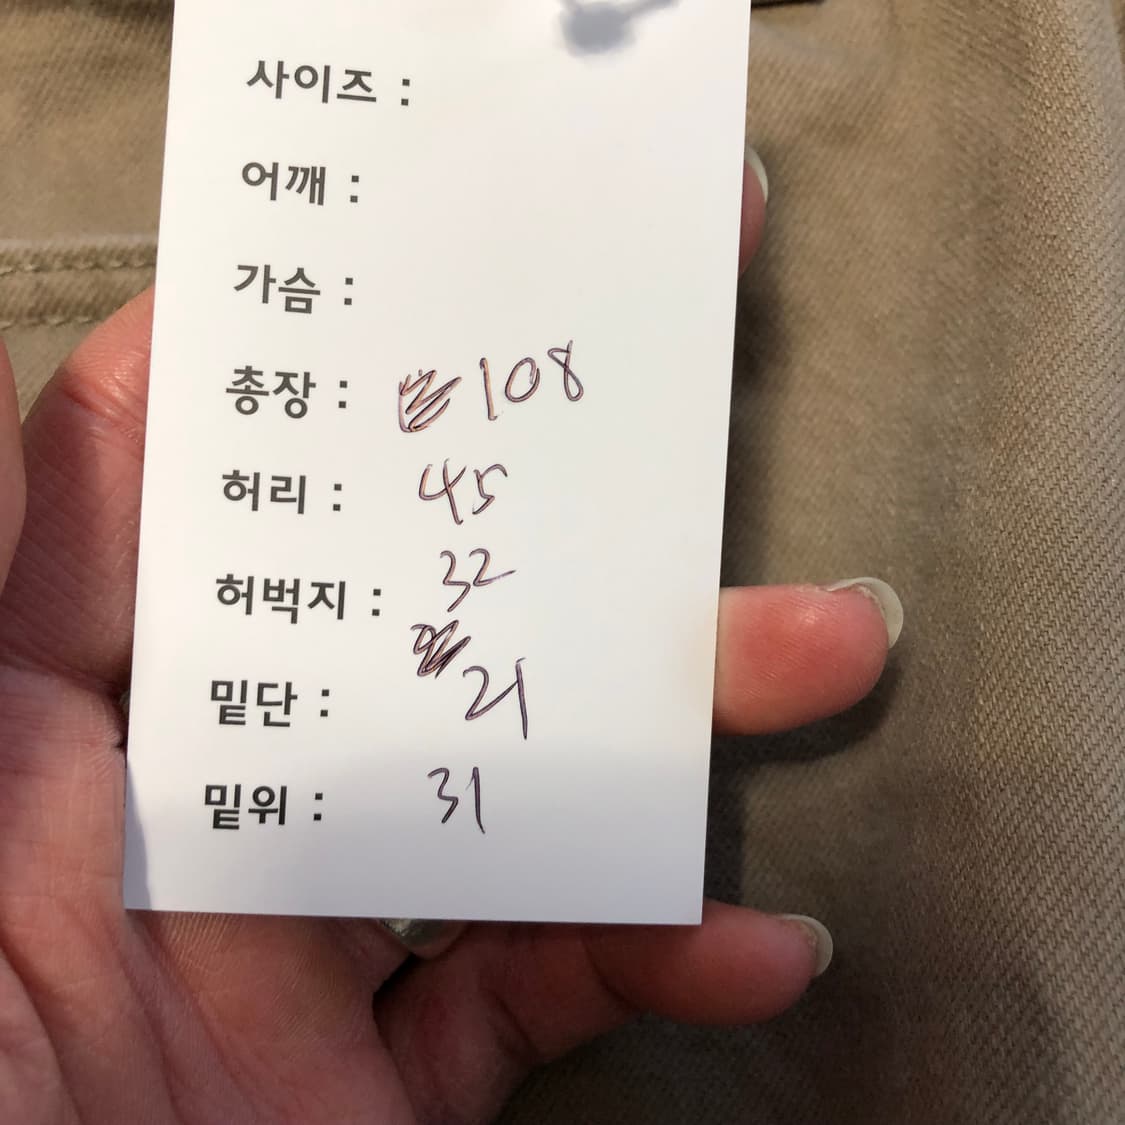 사이즈 :
어깨 :
가슴 :
총장 : 108
허리 : 45
허벅지 : 32
밑단 : 21
밑위 : 31